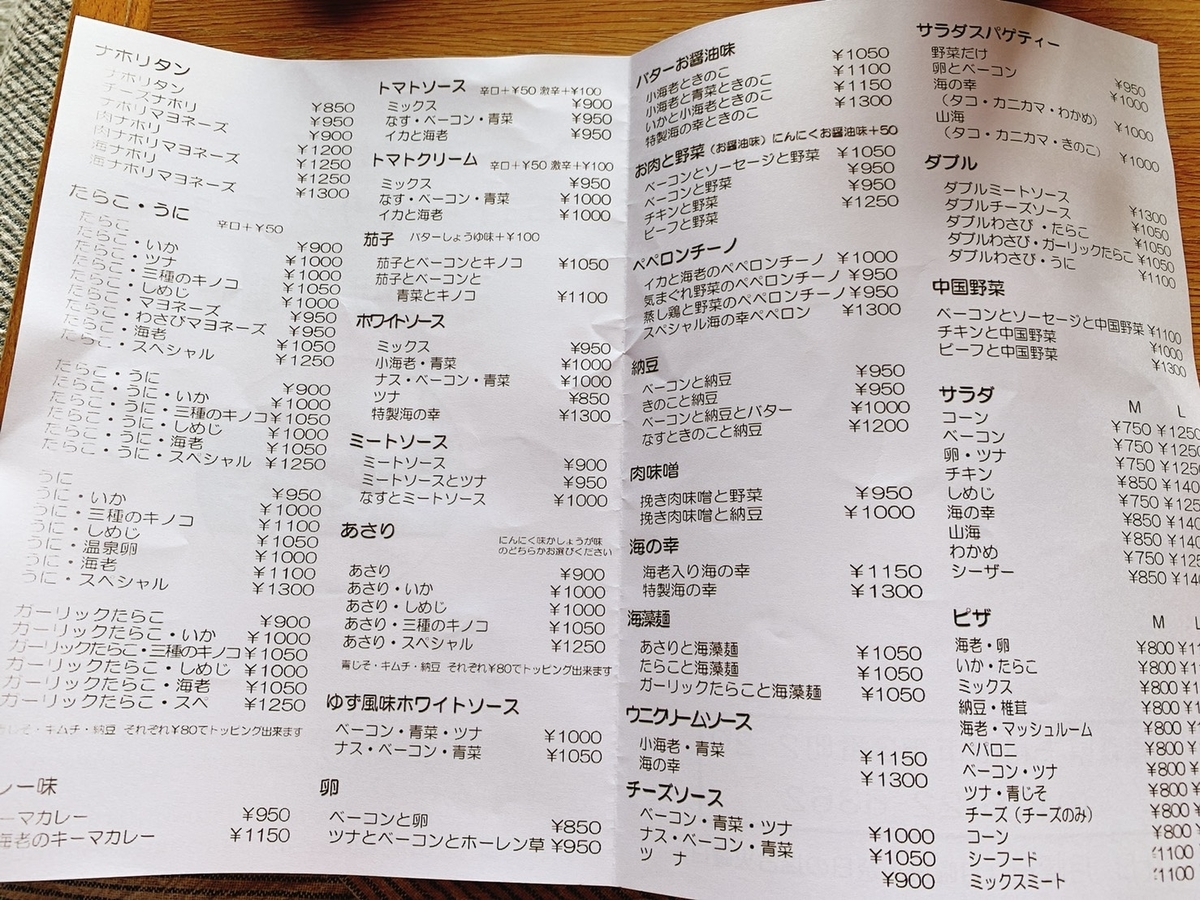 ナホリタン
ナホリタン ¥850
チーズナホリ ¥950
ナホリマヨネーズ ¥900
肉ナホリ ¥1200
肉ナホリマヨネーズ ¥1250
海ナホリ ¥1250
海ナホリマヨネーズ ¥1300
たらこ・うに 辛口+¥50
たらこ ¥900
たらこ・いか ¥1000
たらこ・ツナ ¥1000
たらこ・三種のキノコ ¥1050
たらこ・しめじ ¥1000
たらこ・マヨネーズ ¥950
たらこ・わさびマヨネーズ ¥950
たらこ・海老 ¥1050
たらこ・スペシャル ¥1250
たらこ・うに ¥900
たらこ・うに・いか ¥1000
たらこ・うに・三種のキノコ ¥1050
たらこ・うに・しめじ ¥1000
たらこ・うに・海老 ¥1050
たらこ・うに・スペシャル ¥1250
うに ¥950
うに・いか ¥1000
うに・三種のキノコ ¥1100
うに・しめじ ¥1050
うに・温泉卵 ¥1000
うに・海老 ¥1100
うに・スペシャル ¥1300
ガーリックたらこ ¥900
ガーリックたらこ・いか ¥1000
ガーリックたらこ・三種のキノコ ¥1050
ガーリックたらこ・しめじ ¥1000
ガーリックたらこ・海老 ¥1050
ガーリックたらこ・スペ ¥1250
じそ・キムチ・納豆 それぞれ¥80でトッピング出来ます
レー味
ーマカレー ¥950
海老のキーマカレー ¥1150
トマトソース 辛口+¥50 激辛+¥100
ミックス ¥900
なす・ベーコン・青菜 ¥950
イカと海老 ¥950
トマトクリーム 辛口+¥50 激辛+¥100
ミックス ¥950
なす・ベーコン・青菜 ¥1000
イカと海老 ¥1000
茄子 バターしょうゆ味+¥100
茄子とベーコンとキノコ ¥1050
茄子とベーコンと
青菜とキノコ ¥1100
ホワイトソース
ミックス ¥950
小海老・青菜 ¥1000
ナス・ベーコン・青菜 ¥1000
ツナ ¥850
特製海の幸 ¥1300
ミートソース
ミートソース ¥900
ミートソースとツナ ¥950
なすとミートソース ¥1000
あさり にんにく味かしょうが味
のどちらかお選びください
あさり ¥900
あさり・いか ¥1000
あさり・しめじ ¥1000
あさり・三種のキノコ ¥1050
あさり・スペシャル ¥1250
青じそ・キムチ・納豆 それぞれ¥80でトッピング出来ます
ゆず風味ホワイトソース
ベーコン・青菜・ツナ ¥1000
ナス・ベーコン・青菜 ¥1050
卵
ベーコンと卵 ¥850
ツナとベーコンとホーレン草 ¥950
バターお醤油味
小海老ときのこ ¥1050
小海老と青菜ときのこ ¥1100
いかと小海老ときのこ ¥1150
特製海の幸ときのこ ¥1300
お肉と野菜(お醤油味)にんにくお醤油味+50
ベーコンとソーセージと野菜 ¥1050
ベーコンと野菜 ¥950
チキンと野菜 ¥950
ビーフと野菜 ¥1250
ペペロンチーノ
イカと海老のペペロンチーノ ¥1000
気まぐれ野菜のペペロンチーノ ¥950
蒸し鶏と野菜のペペロンチーノ ¥950
スペシャル海の幸ペペロン ¥1300
納豆
ベーコンと納豆 ¥950
きのこと納豆 ¥950
ベーコンと納豆とバター ¥1000
なすときのこと納豆 ¥1200
肉味噌
挽き肉味噌と野菜 ¥950
挽き肉味噌と納豆 ¥1000
海の幸
海老入り海の幸 ¥1150
特製海の幸 ¥1300
海藻麺
あさりと海藻麺 ¥1050
たらこと海藻麺 ¥1050
ガーリックたらこと海藻麺 ¥1050
ウニクリームソース
小海老・青菜 ¥1150
海の幸 ¥1300
チーズソース
ベーコン・青菜・ツナ ¥1000
ナス・ベーコン・青菜 ¥1050
ツ ナ ¥900
サラダスパゲティー
野菜だけ ¥950
卵とベーコン ¥1000
海の幸
(タコ・カニカマ・わかめ) ¥1000
山海
(タコ・カニカマ・きのこ) ¥1000
ダブル
ダブルミートソース ¥1300
ダブルチーズソース ¥1050
ダブルわさび・たらこ ¥1050
ダブルわさび・ガーリックたらこ ¥1050
ダブルわさび・うに ¥1100
中国野菜
ベーコンとソーセージと中国野菜 ¥1100
チキンと中国野菜 ¥1000
ビーフと中国野菜 ¥1300
サラダ M L
コーン ¥750 ¥1250
ベーコン ¥750 ¥1250
卵・ツナ ¥750 ¥125
チキン ¥850 ¥140
しめじ ¥750 ¥125
海の幸 ¥850 ¥140
山海 ¥850 ¥140
わかめ ¥750 ¥125
シーザー ¥850 ¥140
ピザ M L
海老・卵 ¥800 ¥11
いか・たらこ ¥800 ¥1
ミックス ¥800 ¥1
納豆・椎茸 ¥800 ¥1
海老・マッシュルーム ¥800 ¥
ペパロニ ¥800 ¥
ベーコン・ツナ ¥800 ¥
ツナ・青じそ ¥800 ¥
チーズ(チーズのみ) ¥800 ¥
コーン ¥800
シーフード ¥1100
ミックスミート ¥1100